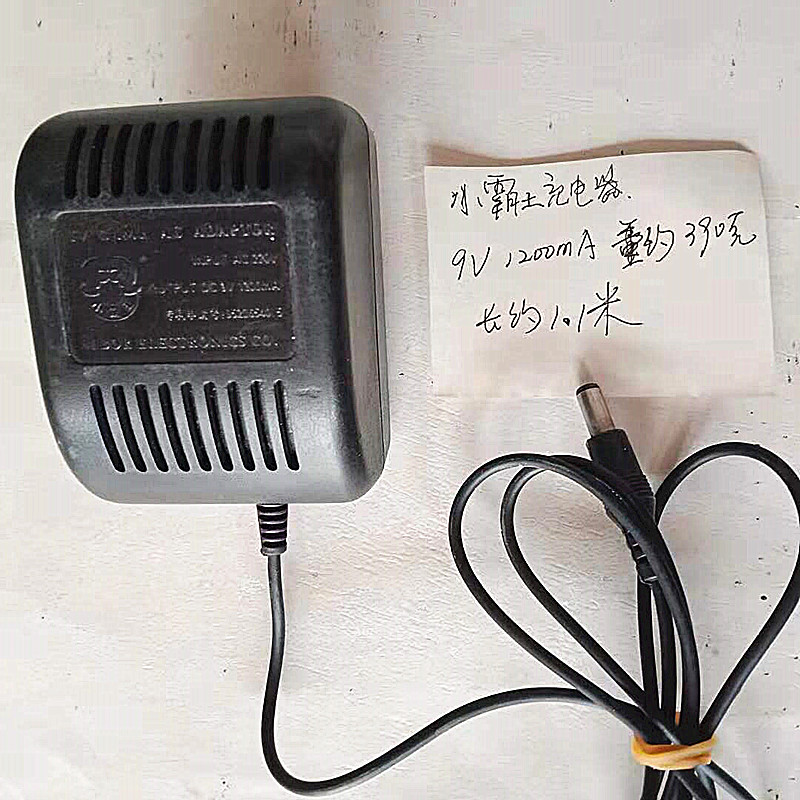 AC ADAPTOR
INPUT AC 220V
OUTPUT DC 9V 1200mA
ELECTRONICS CO.
小霸王充电器.
9V 1200mA 重约390克
长约1.1米